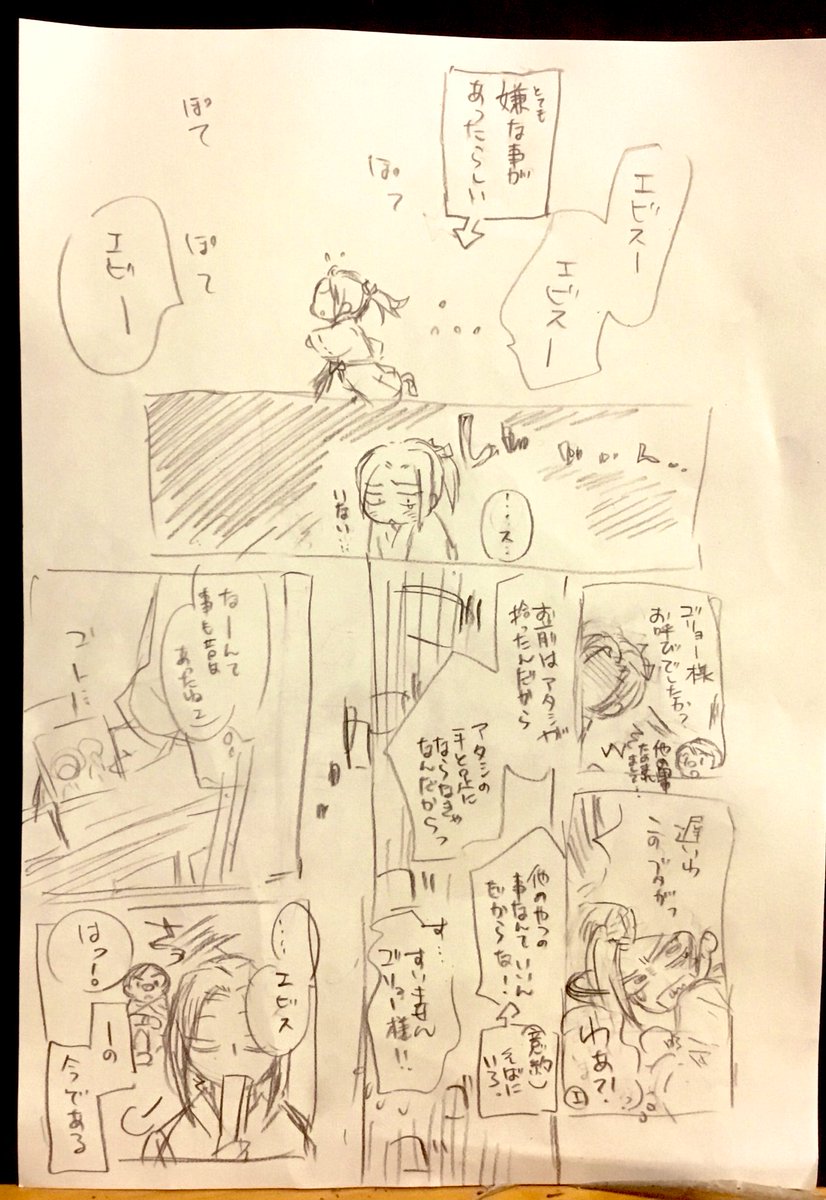 とても
嫌な事が
あったらしい
エビスー
エビスー
ぽて
ぽて
ぽて
エビー
しーん…
…ス…
いない…
ゴリョー様
お呼びでしたか?
他の軍
遅いわ
このブタがっ
わぁ?!
エ
お前はアタシが
拾ったんだから
アタシの
手と足に
ならなきゃ
なんだからっ
他のやつの
事なんていいん
だからな!
(意訳)
そばに
いろ。
す…
すいません
ゴリョー様!!
なーんて
事も昔は
あったねェ
ゴトに
…エビス
さっ
はっ!
ーの
今である